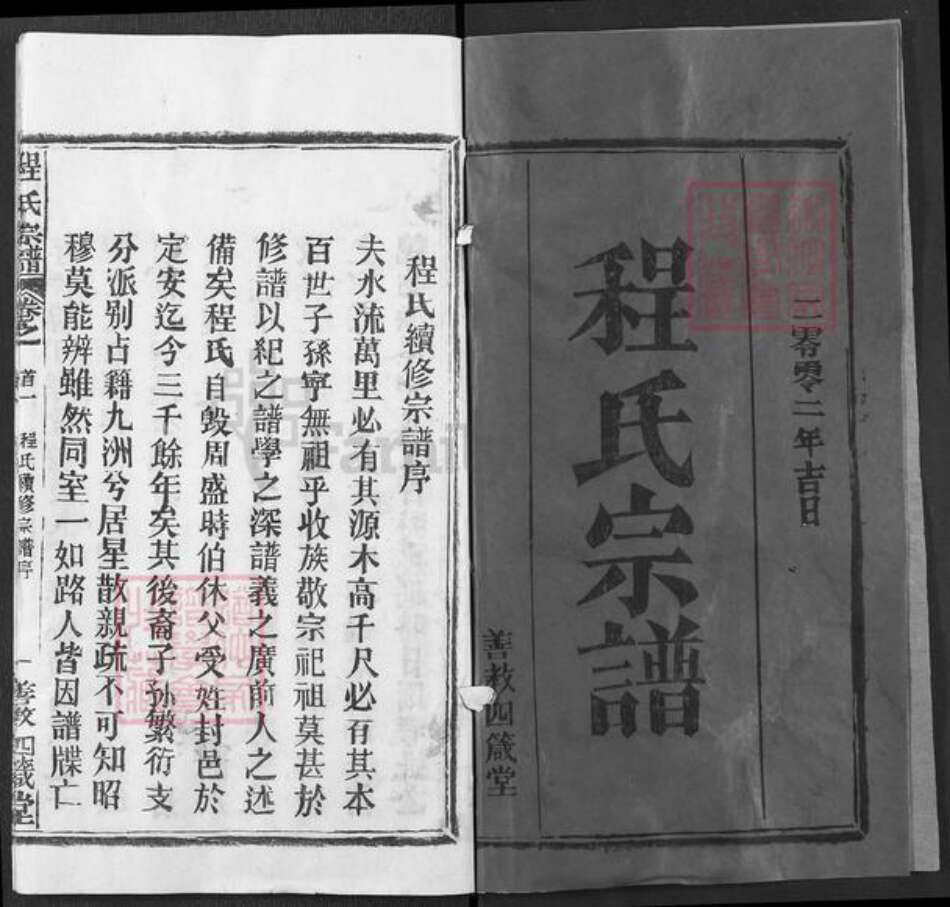 二零零二年吉日
程氏宗譜
善教四箴堂
程氏續修宗譜序
夫水流萬里必有其源木高千尺必有其本
百世子孫寧無祖乎收族敬宗祀祖莫甚於
修譜以紀之譜學之深譜義之廣前人之述
備矣程氏自毀周盛時伯休父受姓封邑於
定安迄今三千餘年矣其後裔子孫繁衍支
分派别占籍九洲兮居星散親疏不可知昭
穆莫能辨雖然同室一如路人皆因譜牒亡
程氏宗譜
卷之一
首一
程氏續修宗譜序
一
善教四箴堂